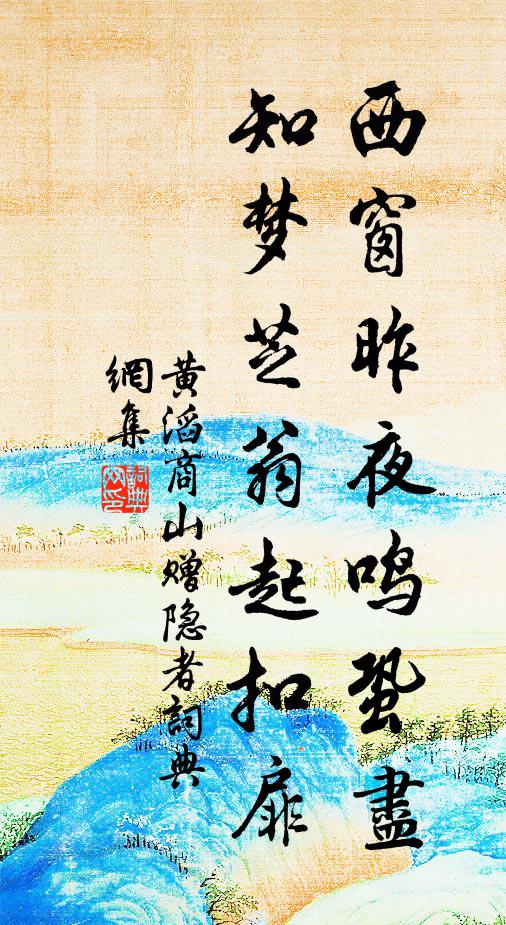 西窗昨夜鸣蛩盡
知梦芝翁起扣扉
黄滔商山赠隐者詞典
網集